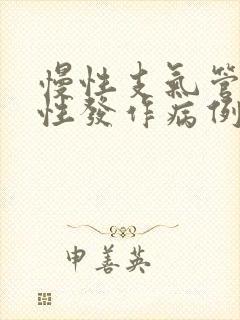 慢性支氣管
性發作病例
申善英